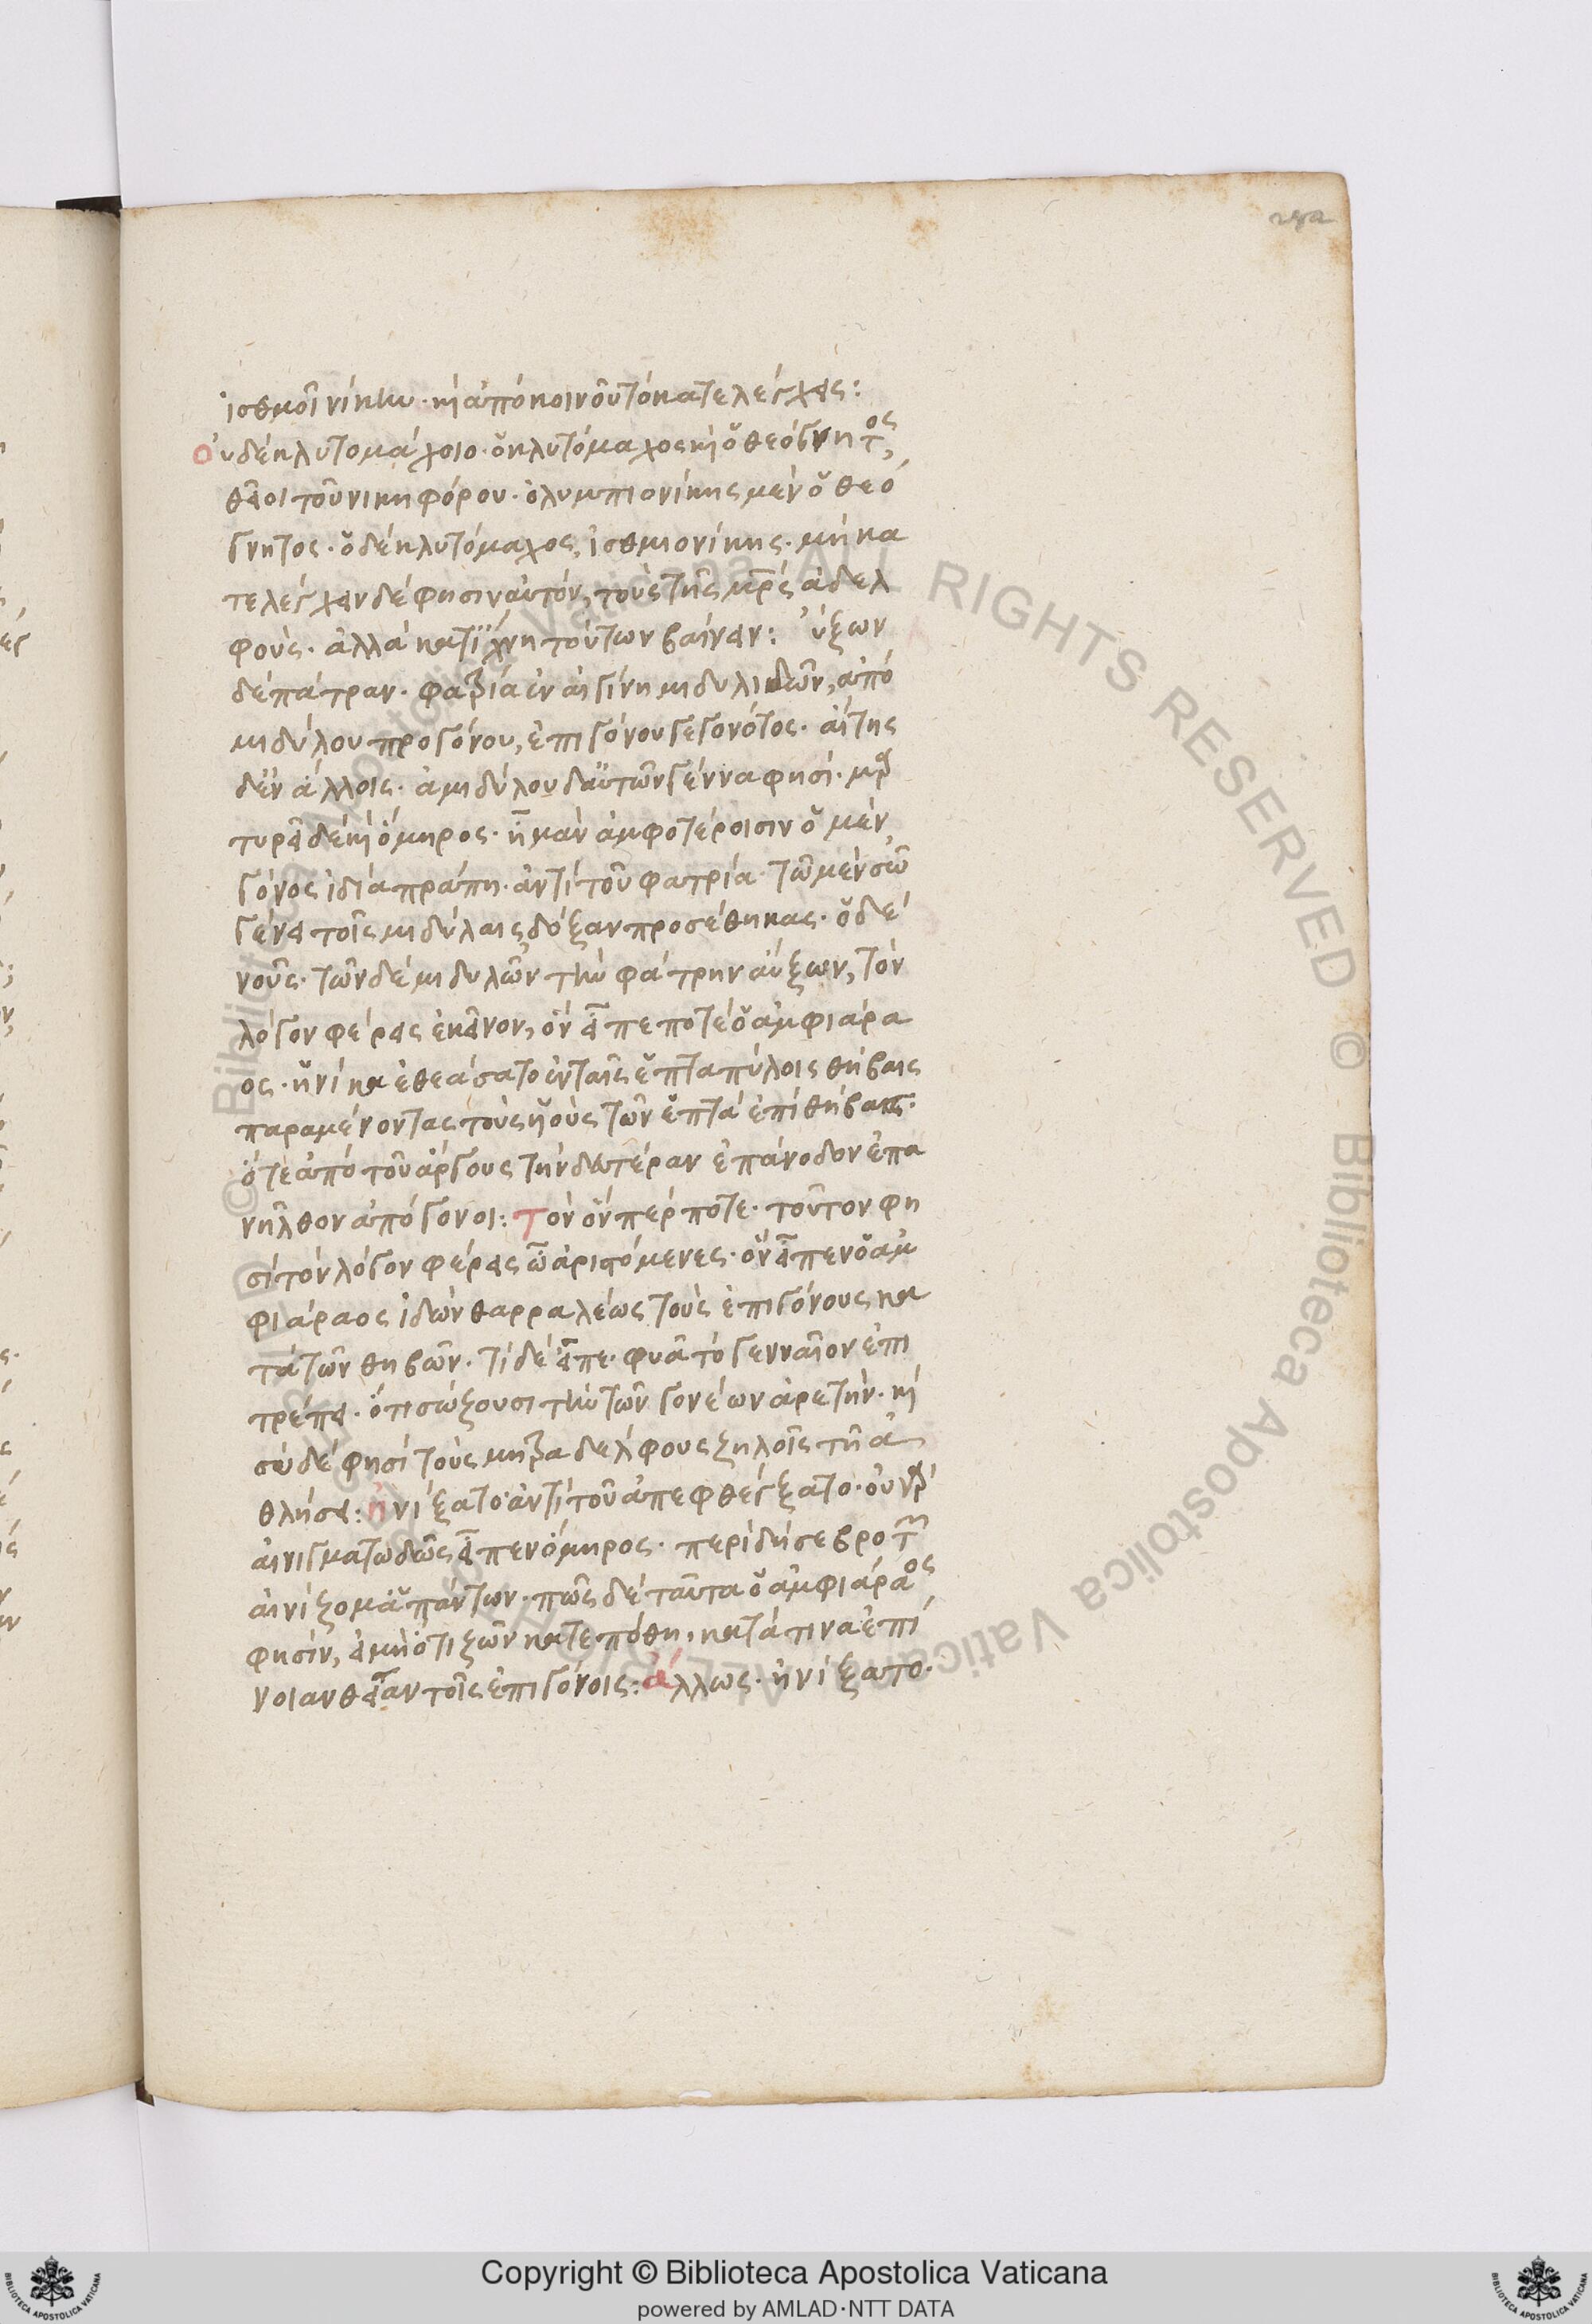 ἰσθμοῖ νίκην· καὶ ἀπὸ κοινοῦ τὸ κατελέγχεις:
οὐδὲ κλυτομάχοιο· ὁ κλυτόμαχος καὶ ὁ θεόγνητος,
θεῖοι τοῦ νικηφόρου· ὀλυμπιονίκης μὲν ὁ θεό
γνητος· ὁ δὲ κλυτόμαχος, ἰσθμιονίκης· μὴ κα
τελέγχειν δέ φησιν αὐτὸν, τοὺς τῆς μητρὸς ἀδελ
φούς· ἀλλὰ κατ' ἴχνη τούτων βαίνειν: ὔξων
δὲ πάτραν· φατρία ἐν αἰγίνη μιδυλιδῶν, ἀπὸ
μιδύλου προγόνου, ἐπιγόνου γεγονότος·
δ' ἐν ἄλλοις· ἁ μιδύλου δ' αὐτῶν γέννα φησί· μαρ
τυρεῖ δὲ καὶ ὅμηρος· ἦ μὰν ἀμφοτέροισιν ὁ μὲν
γόνος ἰδία πράπη· ἀντὶ τοῦ φατρία· τῶ μὲν σῶ
γένει τοῖς μιδύλαις δόξαν προσέθηκας· ὁ δὲ
νοῦς· τῶν δὲ μιδυλῶν τὴν φάτρην αὔξων, τὸν
λόγον φέρεις ἐκεῖνον, ὃν εἶπε ποτὲ ὁ ἀμφιάρα
ος· ἡνίκα ἐθεάσατο ἐν ταῖς ἑπταπύλοις θήβαις
παραμένοντας τοὺς υἱοὺς τῶν ἑπτὰ ἐπὶ θήβαις·
ὅτε ἀπὸ τοῦ ἄργους τὴν δευτέραν ἐπάνοδον ἐπα
νῆλθον ἀπόγονοι: τὸν ὅνπερ ποτε· τοῦτον φη
σὶ τὸν λόγον φέρεις ὦ ἀριστόμενες· ὃν εἶπεν ὁ ἀμ
φιάραος ἰδὼν θαρραλέως τοὺς ἐπιγόνους κα
τὰ τῶν θηβῶν· τί δὲ εἶπε· φυᾶ τὸ γενναῖον ἐπι
τρέπει· ὅτι σώζουσι τὴν τῶν γονέων ἀρετήν· καὶ
σὺ δέ φησι τοὺς μητραδέλφους ζηλοῖς τῆ ἀ
θλήσει: ἠνίξατο ἀντὶ τοῦ ἀπεφθέγξατο· οὐ γὰρ
αἰνιγματωδῶς εἶπεν ὅμηρος· περὶ δή σε βροτῶν
αἰνίζομ' ἁπάντων· πῶς δὲ ταῦτα ὁ ἀμφιάραος
φησὶν, εἰ μὴ ὅτι ζῶν κατεπόθη, κατά τινα ἐπί
νοιαν θείαν τοῖς ἐπιγόνοις: ἄλλως· ἠνίξατο·
Copyright © Biblioteca Apostolica Vaticana
powered by AMLAD·NTT DATA